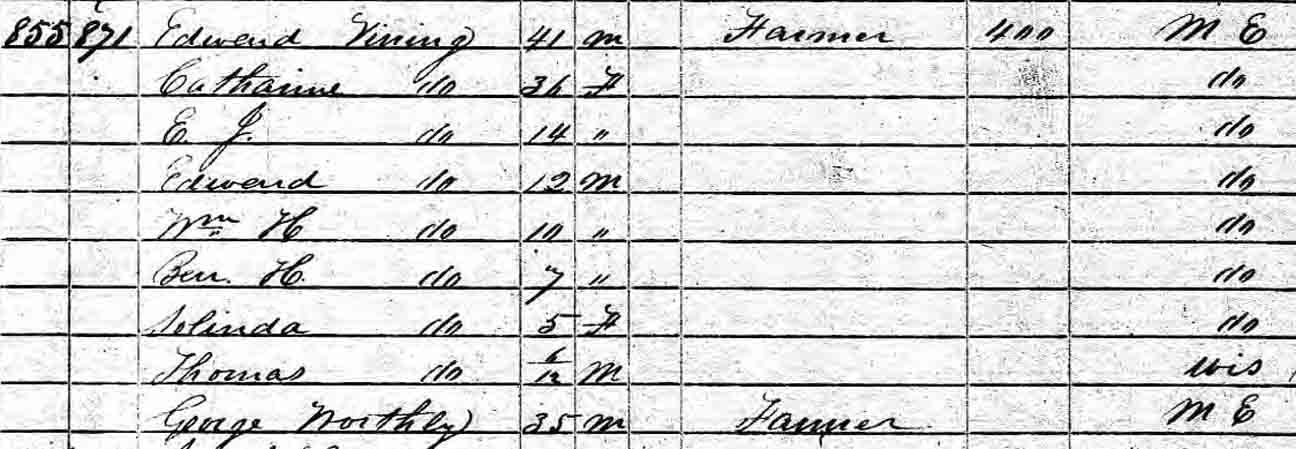 855 871 Edward Vining 41 m Farmer 400 M E
Catharine do 36 F do
E. J. do 14 " do
Edward do 12 m do
Wm H do 10 " do
Ben. H. do 7 " do
Selinda do 5 F do
Thomas do 6/12 M wis
George Worthly 35 m Farmer M E